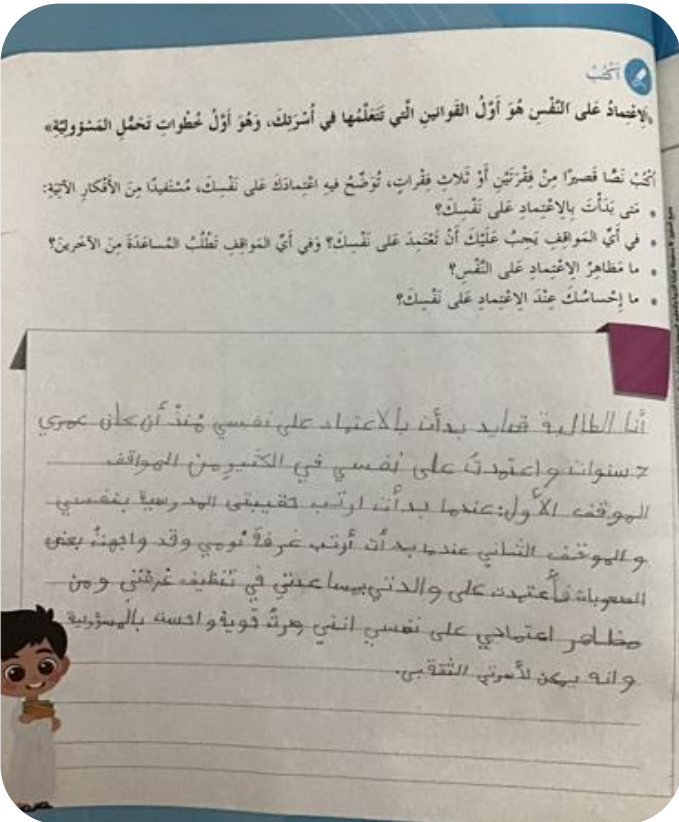 أَكْتُبُ
الِاعْتِمادُ عَلى النَّفْسِ هُوَ أَوَّلُ القَوانينِ الَّتي تَتَعَلَّمُها في أُسْرَتِكَ، وَهُوَ أَوَّلُ خُطُواتِ تَحَمُّلِ المَسْؤوليَّةِ»
أَكْتُبُ نَصًّا قَصيرًا مِنْ فِقْرَتَيْنِ أَوْ ثَلاثِ فِقْراتٍ، تُوَضِّحُ فيهِ اعْتِمادَكَ عَلى نَفْسِكَ، مُسْتَفيدًا مِنَ الأَفْكارِ الآتِيَةِ:
• مَتى بَدَأْتَ بِالِاعْتِمادِ عَلى نَفْسِكَ؟
• في أَيِّ المَواقِفِ يَجِبُ عَلَيْكَ أَنْ تَعْتَمِدَ عَلى نَفْسِكَ؟ وَفي أَيِّ المَواقِفِ تَطْلُبُ المُساعَدَةَ مِنَ الآخَرينَ؟
• ما مَظاهِرُ الِاعْتِمادِ عَلى النَّفْسِ؟
• ما إِحْساسُكَ عِنْدَ الِاعْتِمادِ عَلى نَفْسِكَ؟
أنا الطالبة بدأت بالاعتماد على نفسي مُنذُ أن كان عمري
سنوات و اعتمدتُ على نفسي في الكثير من المواقف
الموقف الأول: عندما بدأت ارتب حقيبتي المدرسية بنفسي
و الموقف الثاني عندما بدأت أرتب غرفةَ نومي وقد واجهتهُ بعض
الصعوبات فأعتمدت على والدتي بمساعدتي في تنظيف غرفتي و من
مظاهر اعتمادي على نفسي انني صرتُ قوية واحسه بالمسؤولية
و انه يمكن لأسرتي الثقة بي.